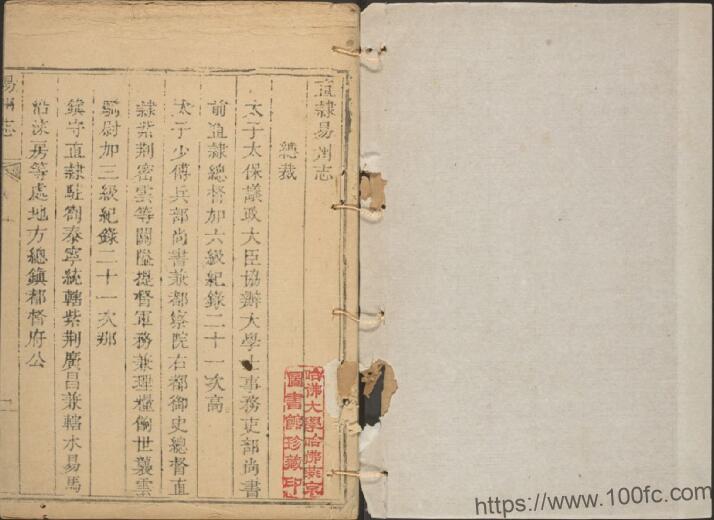 直隸易州志
總裁
太子太保議政大臣協辦大學士事務吏部尚書
前直隸總督加六級紀錄二十一次高
太子少傅兵部尚書兼都察院右都御史總督直
隸紫荊密雲等關隘提督軍務兼理糧餉世襲雲
騎尉加三級紀錄二十一次那
鎮守直隸駐劄泰寧統轄紫荊廣昌兼轄水易馬
沿淶房等處地方總鎮都督府公
易州志
哈佛大學哈佛燕京
圖書館珍藏印
https://www.100fc.com